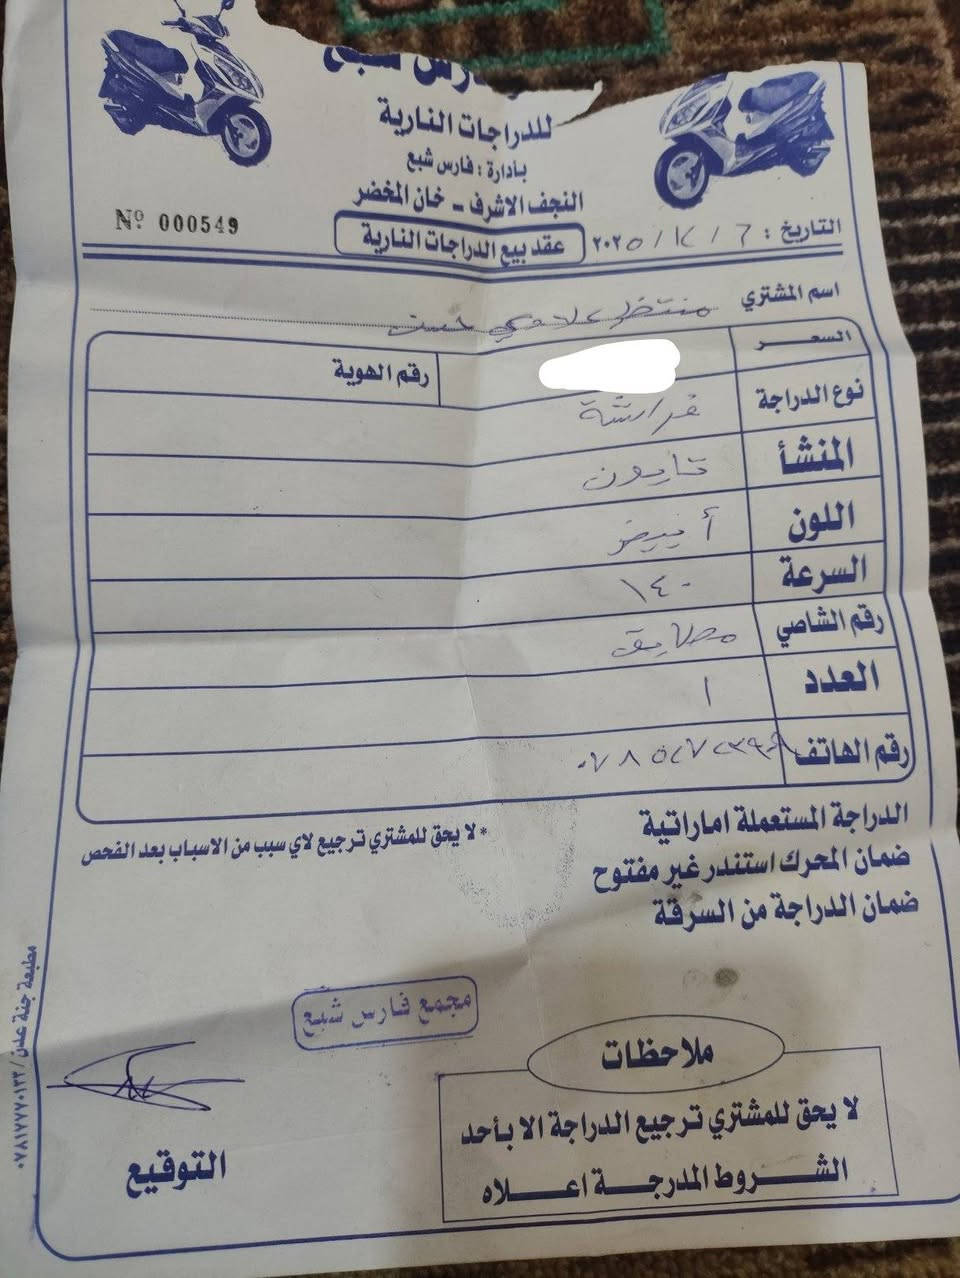 فارس شبع
للدراجات النارية
بأدارة : فارس شبع
النجف الاشرف - خان المخضر
Nº 000549
عقد بيع الدراجات النارية
التاريخ : ٦ / ٢ / ٢٠٢٥
اسم المشتري منتظر علاوي حسن
السعر
رقم الهوية
نوع الدراجة فراشة
المنشأ تايون
اللون أبيض
السرعة ١٤٠
رقم الشاصي مطابق
العدد ١
رقم الهاتف
الدراجة المستعملة اماراتية
* لا يحق للمشتري ترجيع لاي سبب من الاسباب بعد الفحص
ضمان المحرك استندر غير مفتوح
ضمان الدراجة من السرقة
مجمع فارس شبع
ملاحظات
لا يحق للمشتري ترجيع الدراجة الا بأحد
الشروط المدرجة اعلاه
التوقيع
مطبعة جنة عدن / ٠٧٨١٧٧٧٠١٣٣